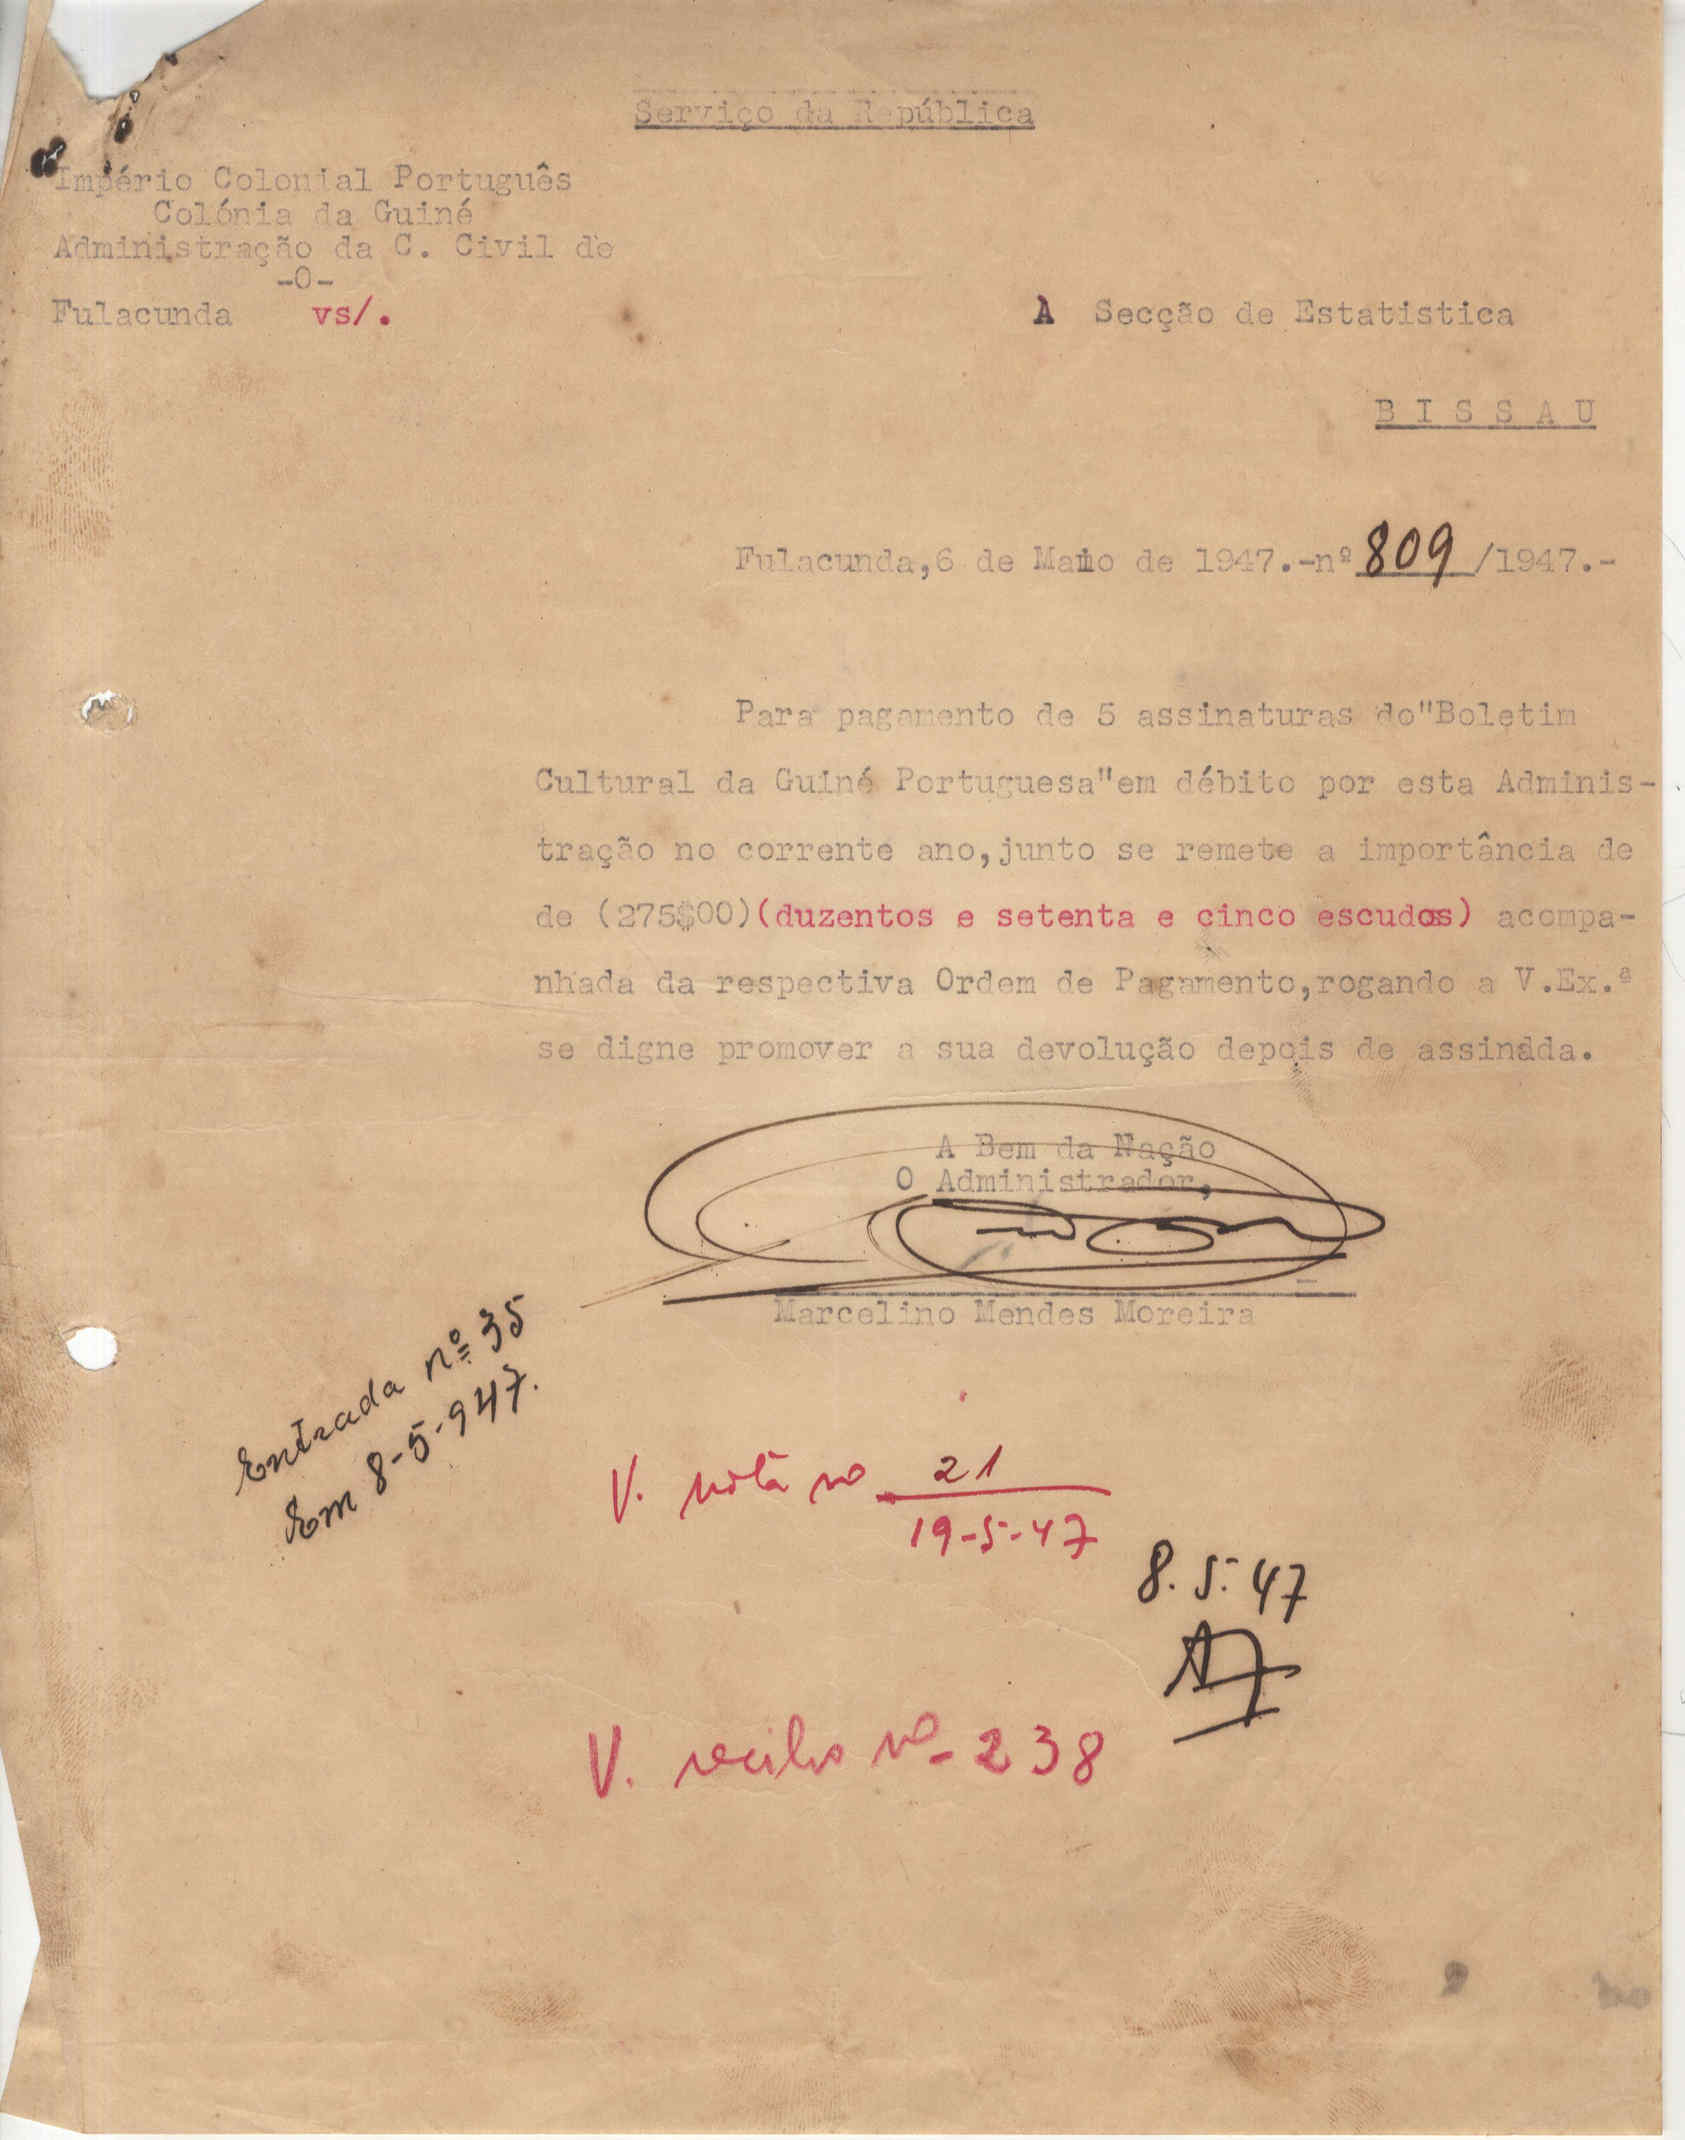 Serviço da República
Império Colonial Português
Colónia da Guiné
Administração da C. Civil de
-O-
Fulacunda vs/.
A Secção de Estatistica
B I S S A U
Fulacunda,6 de Maio de 1947.-nº 809/1947.-
Para pagamento de 5 assinaturas do"Boletim
Cultural da Guiné Portuguesa"em débito por esta Adminis-
tração no corrente ano,junto se remete a importância de
de (275$00)(duzentos e setenta e cinco escudos) acompa-
nhada da respectiva Ordem de Pagamento,rogando a V.Ex.ª
se digne promover a sua devolução depois de assinada.
A Bem da Nação
O Administrador,
Marcelino Mendes Moreira
Entrada nº 35
Em 8-5-947.
V. nota nº 21
19-5-47
8.5.47
V. recibo nº 238